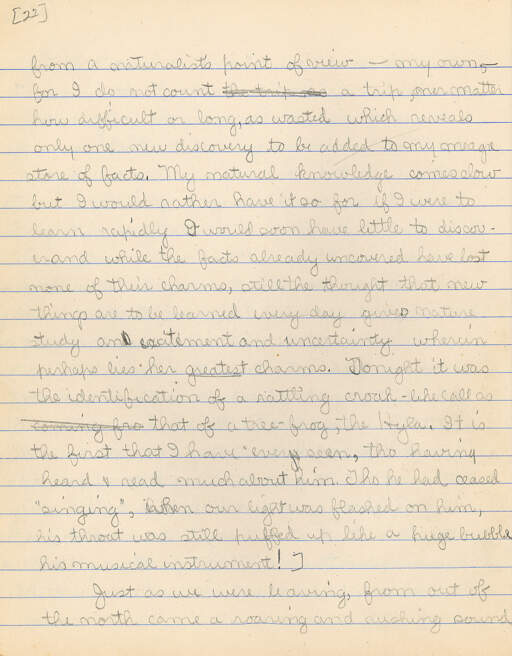 [22]
from a naturalist's point of view — my own,
for I do not count the trip as a trip, no matter
how difficult or long, as wasted which reveals
only one new discovery to be added to my meagre
store of facts. My natural knowledge comes slow
but I would rather have it so for if I were to
learn rapidly I would soon have little to discov-
er and while the facts already uncovered have lost
none of their charms, still the thought that new
things are to be learned every day gives nature
study an excitement and uncertainty wherein
perhaps lies her greatest charms. Tonight it was
the identification of a rattling croak-like call as
coming fro that of a tree-frog, the Hyla. It is
the first that I have ever seen, tho having
heard & read much about him. Tho he had ceased
"singing", when our light was flashed on him,
his throat was still puffed up like a huge bubble
his musical instrument! ]
Just as we were leaving, from out of
the north came a roaring and rushing sound